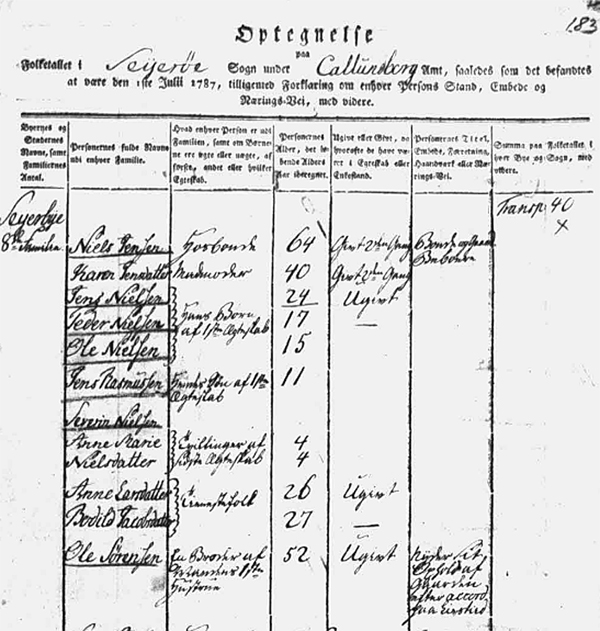 183
Optegnelse
paa
Folketallet i Seyerøe Sogn under Callundborg Amt, saaledes som det befandtes
at være den 1ste Julii 1787, tilligemed Forklaring om enhver Persons Stand, Embede og
Nærings-Vei, med videre.
Byernes og Stædernes Navne, samt Familiernes Antal.
Personernes fulde Navne udi enhver Familie.
Hvad enhver Person er udi Familien, samt om Børnene ere ægte eller uægte, af første, andet eller hvilket Egteskab.
Personernes Alder, det løbende Alders Aar iberegnet.
Ugivt eller Givt, og hvorofte de have været i Egteskab eller Enkestand.
Personernes Titel, Embede, Forretning, Haandværk eller Nærings-Vei.
Summa paa Folketallet i hver Bye og Sogn, med videre.
Transp. 40
x
Seyerbye
8de Familien Niels Jensen Hosbonde 64 Givt 2den Gang Bonde og Gaard Beboere
Karen Jensdatter Madmoder 40 Givt 2den Gang
Jens Nielsen 24 Ugivt
Peder Nielsen Hans Børn af 1ste Ægteskab 17 —
Ole Nielsen 15
Jens Rasmussen Hendes Søn af 1ste Ægteskab 11
Severin Nielsen
Anne Marie Tvillinger af 4
Nielsdatter sidste Ægteskab 4
Anne Larsdatter Tienestefolk 26 Ugivt
Bodild Jacobsdatter 27 —
Ole Sørensen En Broder af 52 Ugivt Nyder sit
Mandens 1ste Ophold af
Hustrue Gaarden
efter accord